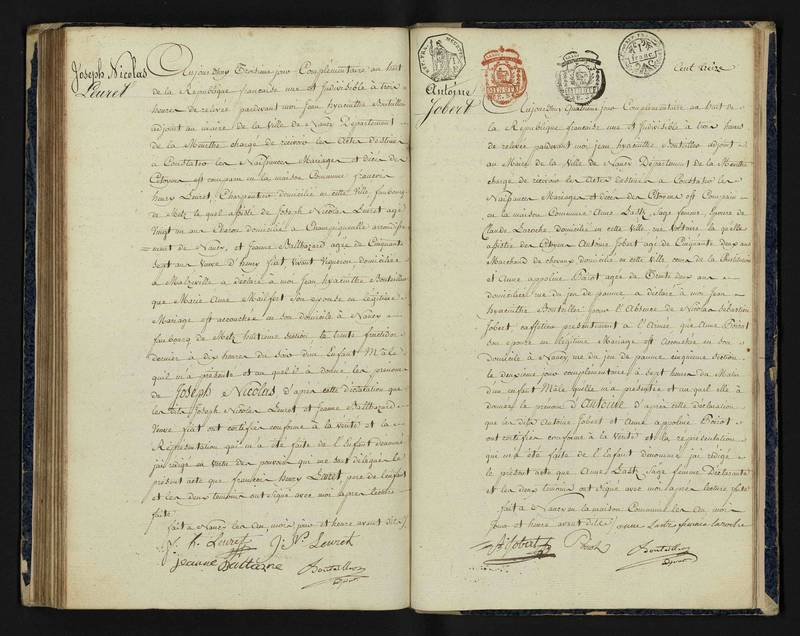 Joseph Nicolas
Leuret
Aujourdhuy Troisieme jour Complémentaire an huit
de la République française une et Indivisible à trois
heures de relevée pardevant moi Jean hyacinthe Bouteiller
adjoint au maire de la Ville de Nancy Département
de la Meurthe chargé de recevoir les actes destinés
à Constater les Naissances Mariages et décès des
Citoyens est comparu en la maison Commune françois
henry Leuret Charpentier domicilié en cette Ville faubourg
de Metz le quel assisté de Joseph Nicolas Leuret agé
Vingt un ans domicilié à Champigneulle arrondisse
ment de Nancy, et Jeanne Balthazard agée de Cinquante
sept ans Veuve d'henry fiat Vivant Vigneron, domiciliée
à Malzéville a déclaré à moi Jean hyacinthe Bouteiller
que Marie Anne Mailfert Son epouse en légitime
Mariage est accouchée en son domicile à Nancy
faubourg de Metz huitieme section, le trente fructidor
dernier à dix heures du Soir d'un Enfant Mâle
qu'il m'a présenté et au quel il a donné les prenoms
de Joseph Nicolas d'après cette déclaration que
les dits Joseph Nicolas Leuret et Jeanne Balthazard
Veuve fiat ont certifiée conforme à la vérité et la
Représentation qui m'a été faite de l'Enfant denommé
j'ai rédigé en Vertu des pouvoirs qui me sont délégués le
présent acte que françois henry Leuret pere de l'enfant
et les deux temoins ont signé avec moi après lecture
faite
fait à Nancy les an, mois jour et heure avant dits
f. h. Leuret J. N. Leuret
jeanne Baltazare Bouteiller
adjoint
Cent treize
Antoine
Jobert
Aujourdhuy quatrieme jour Complémentaire an huit de
la République française une et Indivisible à trois heures
de relevée pardevant moi jean hyacinthe Bouteiller adjoint
au Maire de la Ville de Nancy Département de la Meurthe
chargé de recevoir les actes destinés à Constater les
Naissances Mariages et décès des Citoyens est Comparu
en la maison Commune Anne Lasté Sage femme, épouse de
Claude Laroche domiciliée en cette ville rue Voltaire la quelle
assistée des Citoyens Antoine Jobert agé de Cinquante deux ans
Marchand de chevaux domicilié en cette ville cours de la
et Anne appoline Poirot agée de Trente deux ans
domiciliée rue du jeu de paume a déclaré à moi Jean
hyacinthe Bouteiller pour l'Absence de Nicolas Sébastien
Jobert présentement à l'Armée que Anne Poirot
son épouse en légitime Mariage est Accouchée en son
domicile à Nancy rue du jeu de paume cinquieme section
le deuxieme jour complémentaire à sept heures du Matin
d'un enfant Mâle qu'elle m'a présenté et au quel elle a
donné le prénom d'Antoine d'après cette déclaration
que les dits Antoine Jobert et Anne appoline Poirot
ont certifiée conforme à la Vérité et la représentation
qui m'a été faite de l'Enfant denommé j'ai rédigé
le présent acte que Anne Lasté Sage femme Déclarante
et les deux temoins ont signé avec moi après lecture faite
fait à Nancy en la maison Commune les an mois
jour et heure avant dits anne Lasté femme laroche
A Jobert Poirot Bouteiller
adjoint